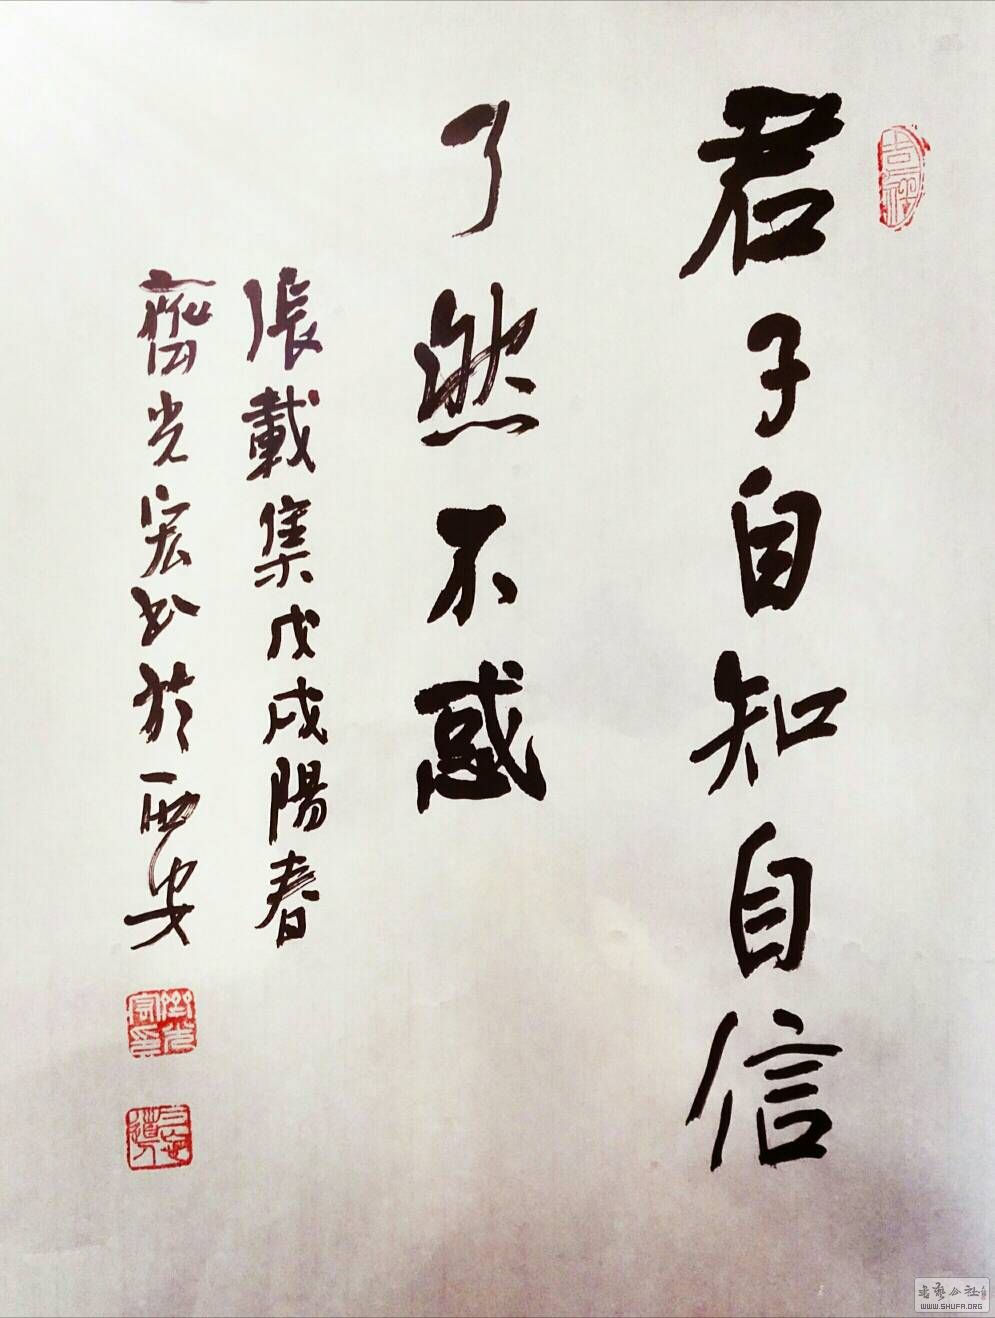 君子自知自信
了然不惑
張載集戊戌陽春
齊光宏书於西安
吉祥
WWW.SHUFA.ORG